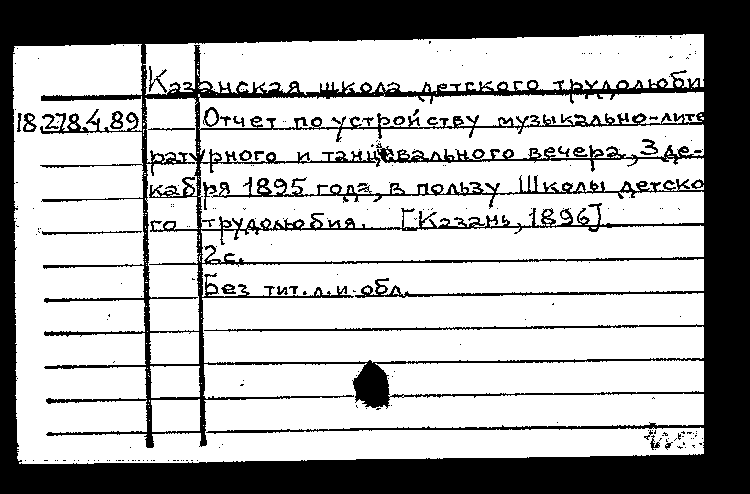 Казанская школа детского трудолюби
18.278.4.89 Отчет по устройству музыкально-лите
ратурного и танцевального вечера, 3 де-
кабря 1895 года, в пользу Школы детско
го трудолюбия. [Казань, 1896].
2с.
Без тит. л. и обл.